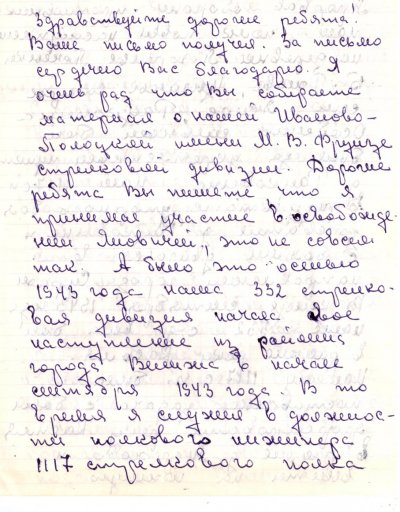 Здравствуйте дорогие ребята!
Ваше письмо получил. За письмо
сердечно Вас благодарю. Я
очень рад что Вы собираете
материал о нашей Иваново-
Полоцкой имени М. В. Фрунзе
стрелковой дивизии. Дорогие
ребята Вы пишете что я
принимал участие в освобожде-
нии Яновичей, это не совсем
так. А было это осенью
1943 года наша 332 стрелко-
вая дивизия начала свое
наступление из района
города Велижа в начале
сентября 1943 года. В то
время я служил в должнос-
ти полкового инженера
1117 стрелкового полка